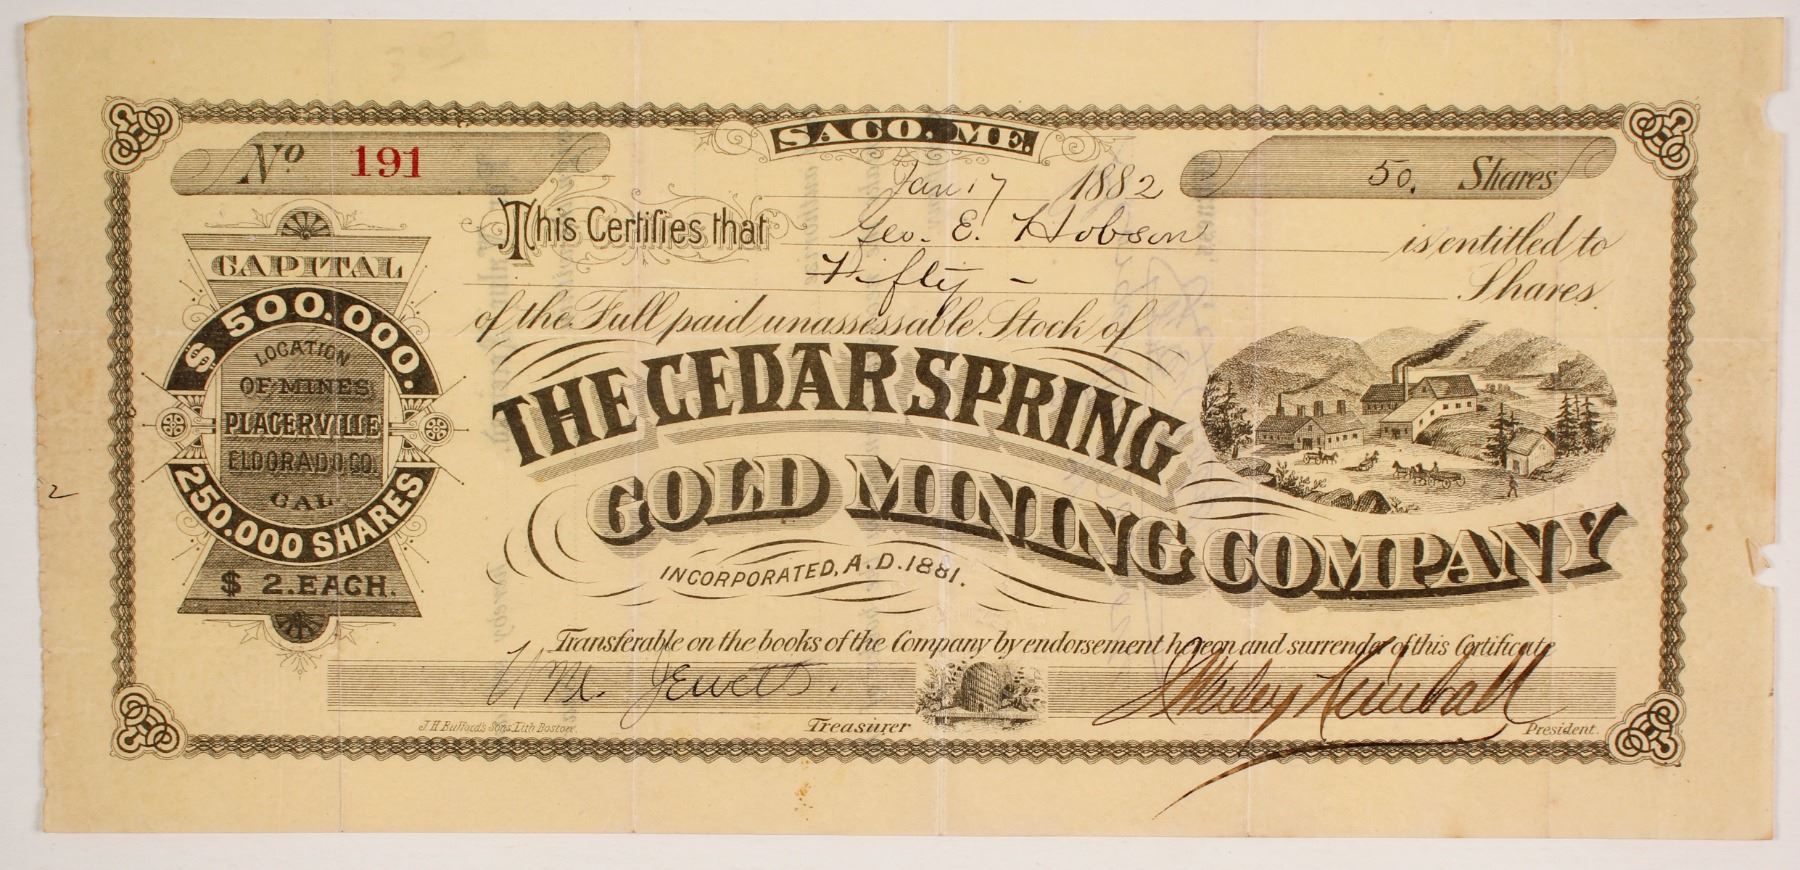 SACO. ME.
No 191
Jan 17 1882
50. Shares
This Certifies that Geo. E. Hobson is entitled to
Fifty – Shares
of the Full paid unassessable Stock of
THE CEDAR SPRING
GOLD MINING COMPANY
INCORPORATED, A.D. 1881.
CAPITAL
$500.000.
LOCATION
OF MINES
PLACERVILLE
ELDORADO CO.
CAL.
250.000 SHARES
$ 2. EACH.
2
Transferable on the books of the Company by endorsement hereon and surrender of this Certificate
Wm. Jewett. Kimball
J.H. Bufford's Sons. Lith Boston.
Treasurer
President.